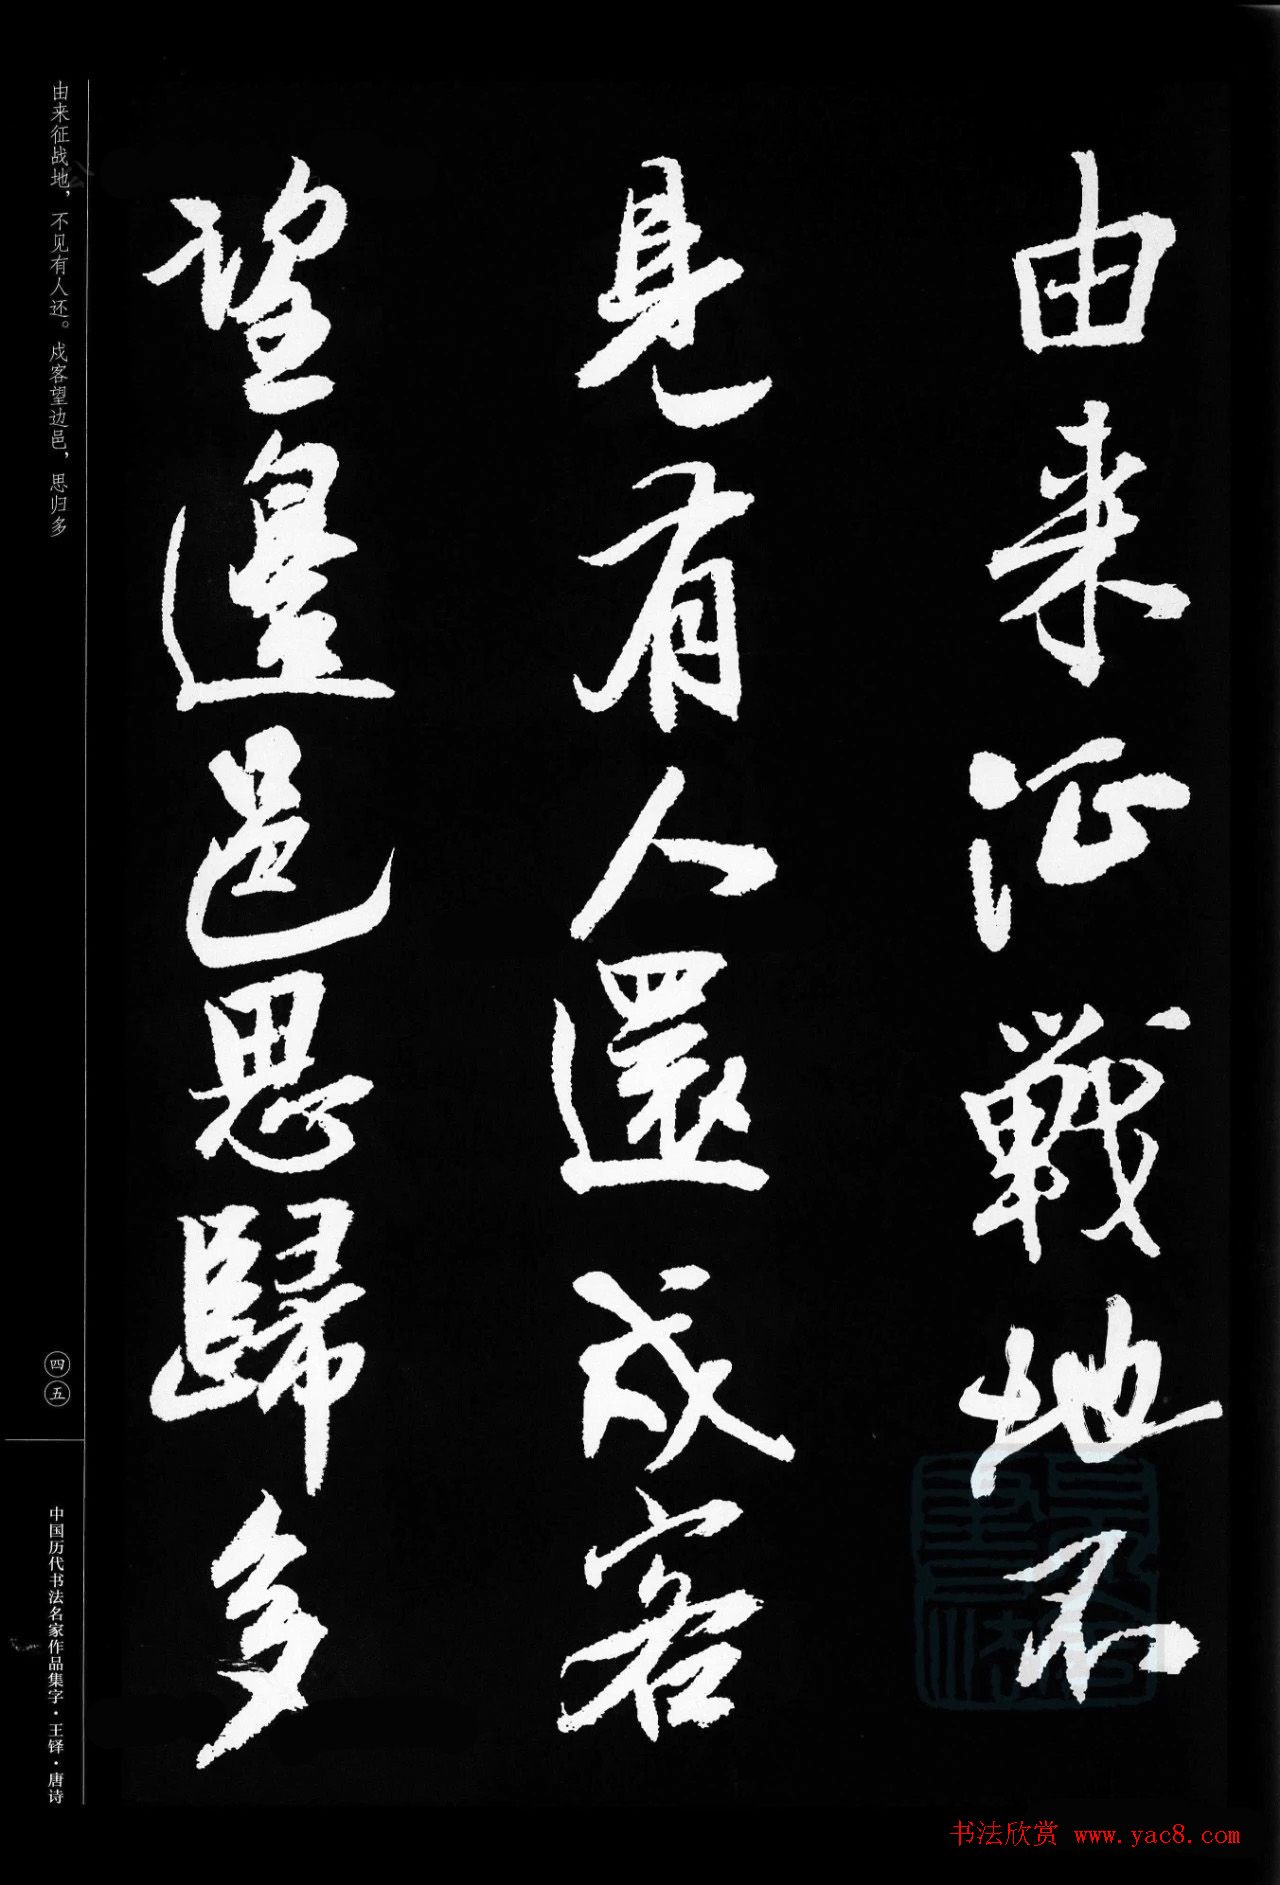 由来征戰地不
見有人還戍客
望邊邑思歸多
由来征战地，不见有人还。戍客望边邑，思归多
四五
中国历代书法名家作品集字·王铎·唐诗
书法欣赏 www.yac8.com